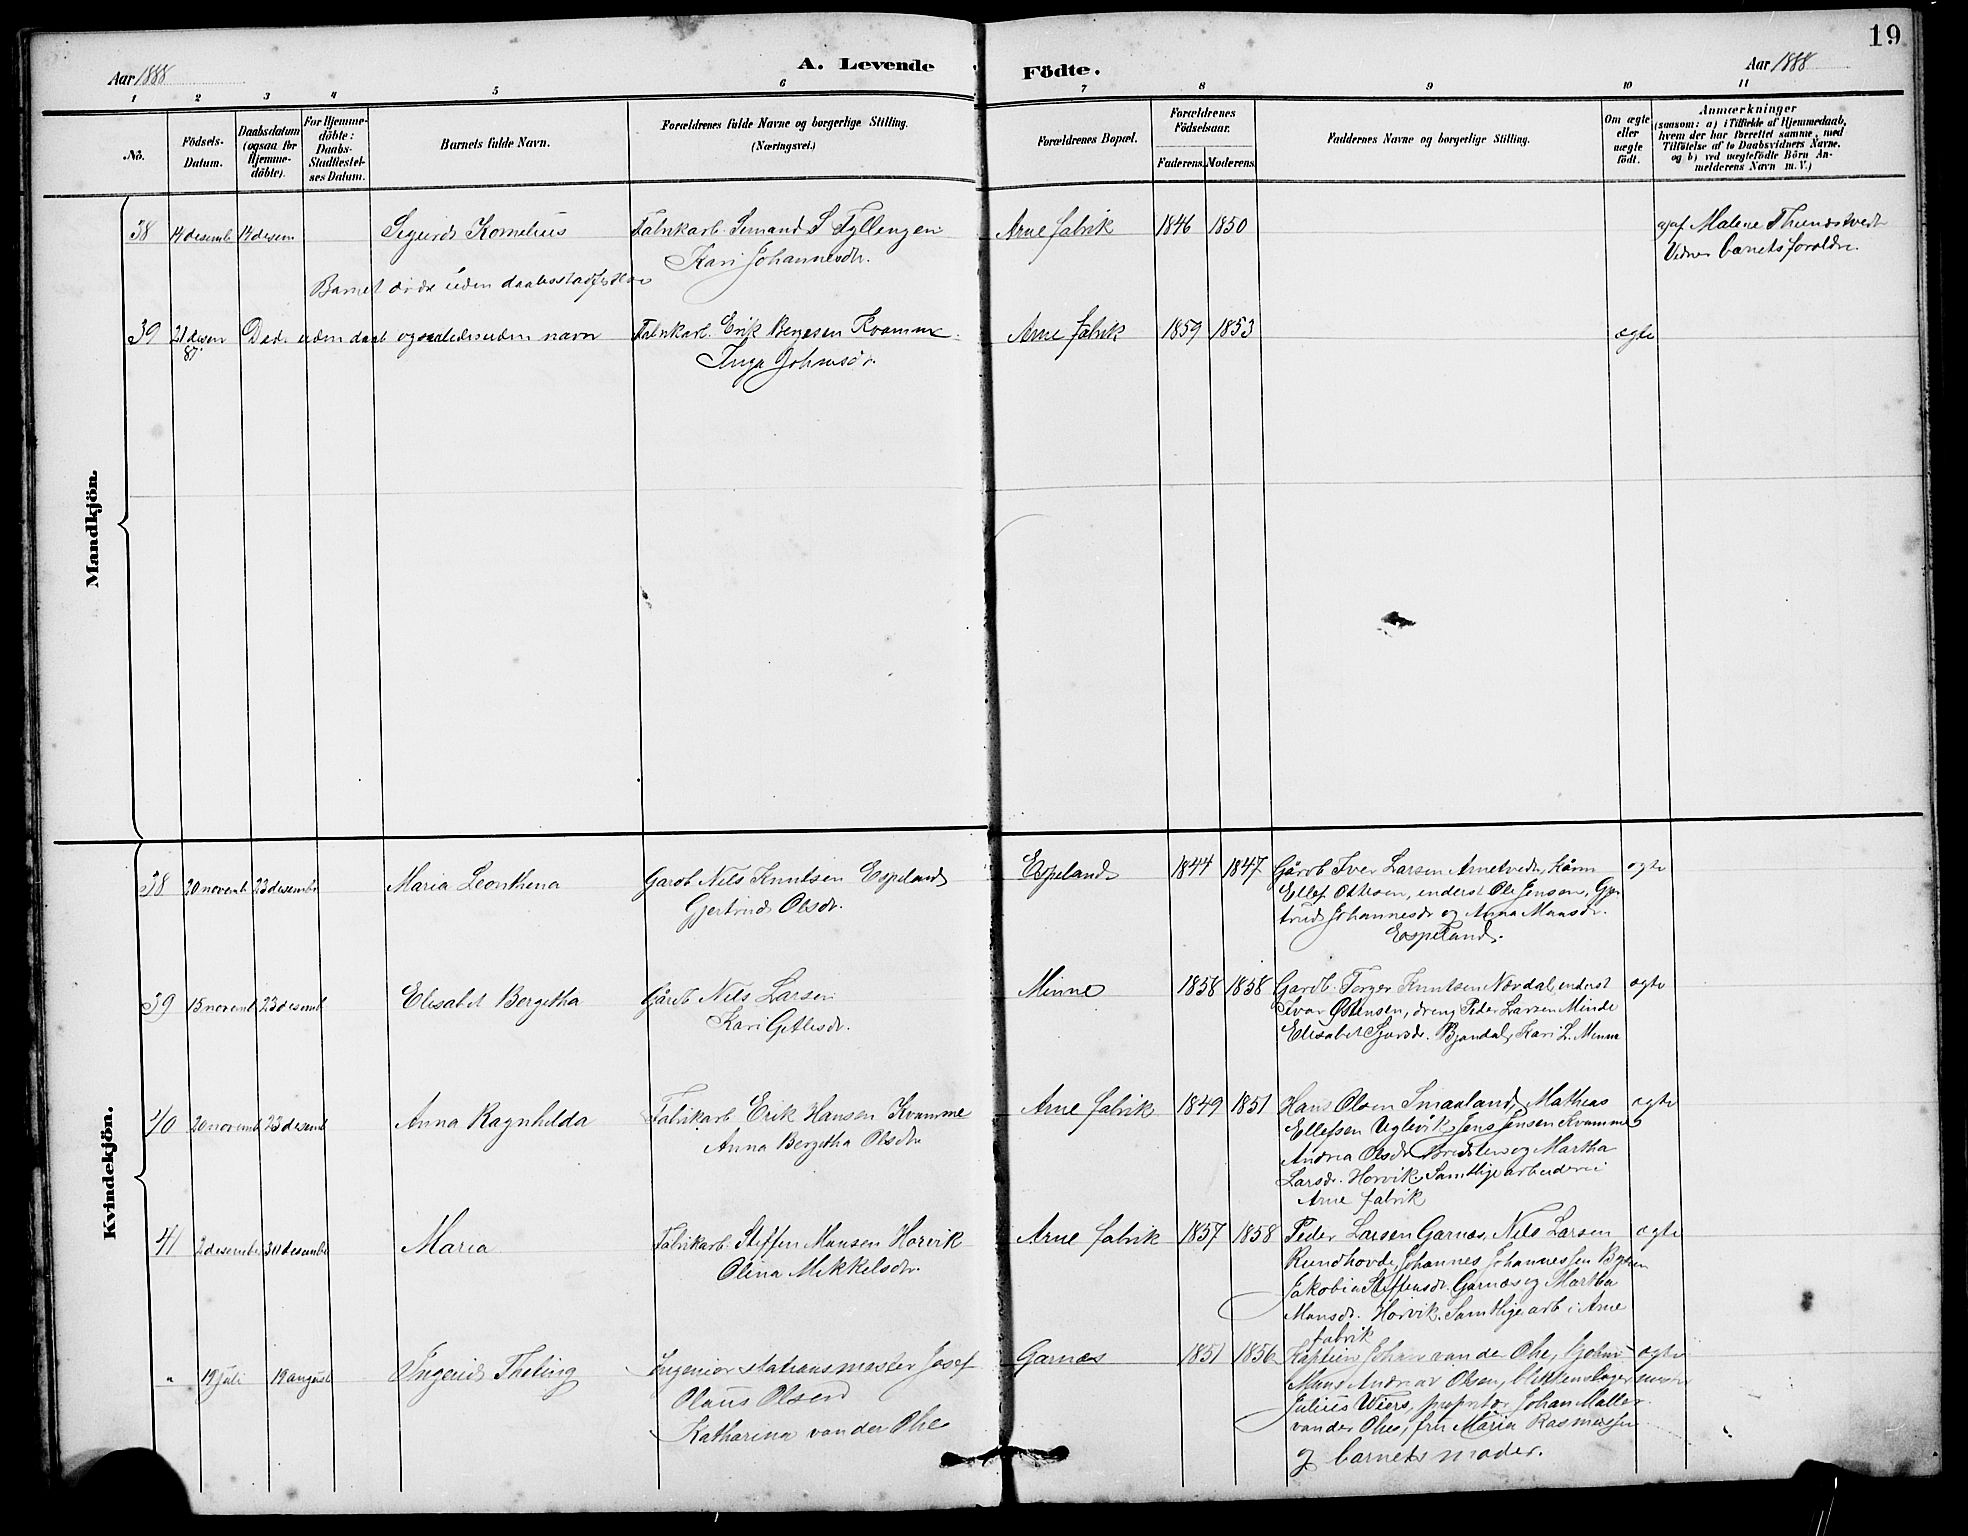 19
Aar 1888
A. Levende Födte.
Aar 1888
1 2 3 4 5 6 7 8 9 10 11
No.
Födsels-Datum.
Daabsdatum (ogsaa for Hjemme-döbte).
For Hjemme-döbte: Daabs-Stadfæstel-ses Datum.
Barnets fulde Navn.
Forældrenes fulde Navne og borgerlige Stilling.
(Næringsvei.)
Forældrenes Bopæl.
Forældrenes Födselsaar.
Faderens. Moderens.
Faddernes Navne og borgerlige Stilling.
Om ægte eller uægte födt.
Anmærkninger
(saasom: a) i Tilfælde af Hjemmedaab,
hvem der har forrettet samme, med
Tilföielse af to Daabsvidners Navne,
og b) ved uægtefödte Börn An-
melderens Navn m. V.)
Mandkjön.
38 14 desemb 14 desem Sigurd Kornelius Fabrikarb. S Fyllingen Arne fabrik 1846 1850 af Malene
Kari Johannesdr. barnets forældre
Barnet döde uden
39 21 desem Død uden daab og saaledes uden navn Fabrikarb. Erik Kvamme Arne fabrik 1859 1853 ægte
87. Inga Johnsdr.
Kvindekjön.
38 20 novemb 23 desembr Maria Leonthena Garob Nils Knutsen Espeland Espeland 1844 1847 Gårob Iver Larsen Arnetvedt, Kårm ægte
Gjertrud Olsdr. Ellef Ottesen, enderst Ole Jensen, Gjer
trud Johannesdr og Anna Mansdr.
Espeland.
39 15 novemb 23 desemb Elisabet Bergitha Gårob Nils Larsen Minne 1858 1858 Garob. Torger Knutsen Nordal, enderst ægte
Kari dr. Ivar Østensen, dreng Peder Larsen Minde
Elisabet dr. Kari L. Minne
40 20 novemb 23 desemb Anna Ragnhilda Fabrikarb Erik Hansen Kvamme Arne fabrik 1849 1851 Hans Olsen Smaaland, Mathias ægte
Anna Bergitha Olsdr Ellefsen Jens Jensen Kvamme
Andrea Olsdr og Martha
Larsdr. Horvik, Samtlige arbeidere i
Arne fabrik
41 2 desembr 30 desembr Maria Fabrikarb. Steffen Mansen Horvik Arne fabrik 1857 1858 Peder Larsen Garnæs, Nils Larsen ægte
Olina Mikkelsdr. Rundhovde, Johannes Johannessen
Jakobia Steffensdr. Garnæs og Martha
Mansdr. Horvik. Samtlige arb i Arne
fabrik
" 19 juli 19 august Ingerid Theting Ingeniør stationsmester Josef Garnæs 1851 1856 Kaptein Johan van der Ohe, ægte
Olaus Olsen Andreas Olsen,
Katharina van der Ohe Julius Wiers, proprietær Johan Møller
van der Ohe, fru Maria Rasmussen
og barnets moder.